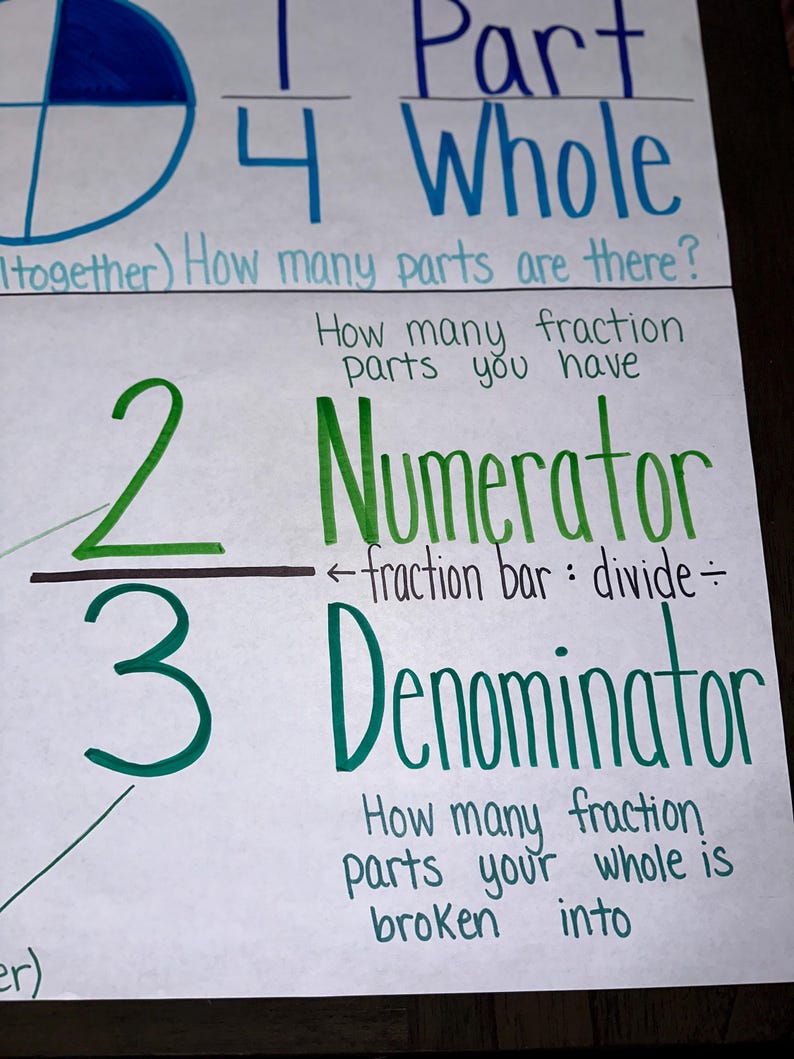 1 Part
4 Whole
How many parts are there?
How many fraction
parts you have
2 Numerator
← fraction bar : divide ÷
3 Denominator
How many fraction
parts your whole is
broken into